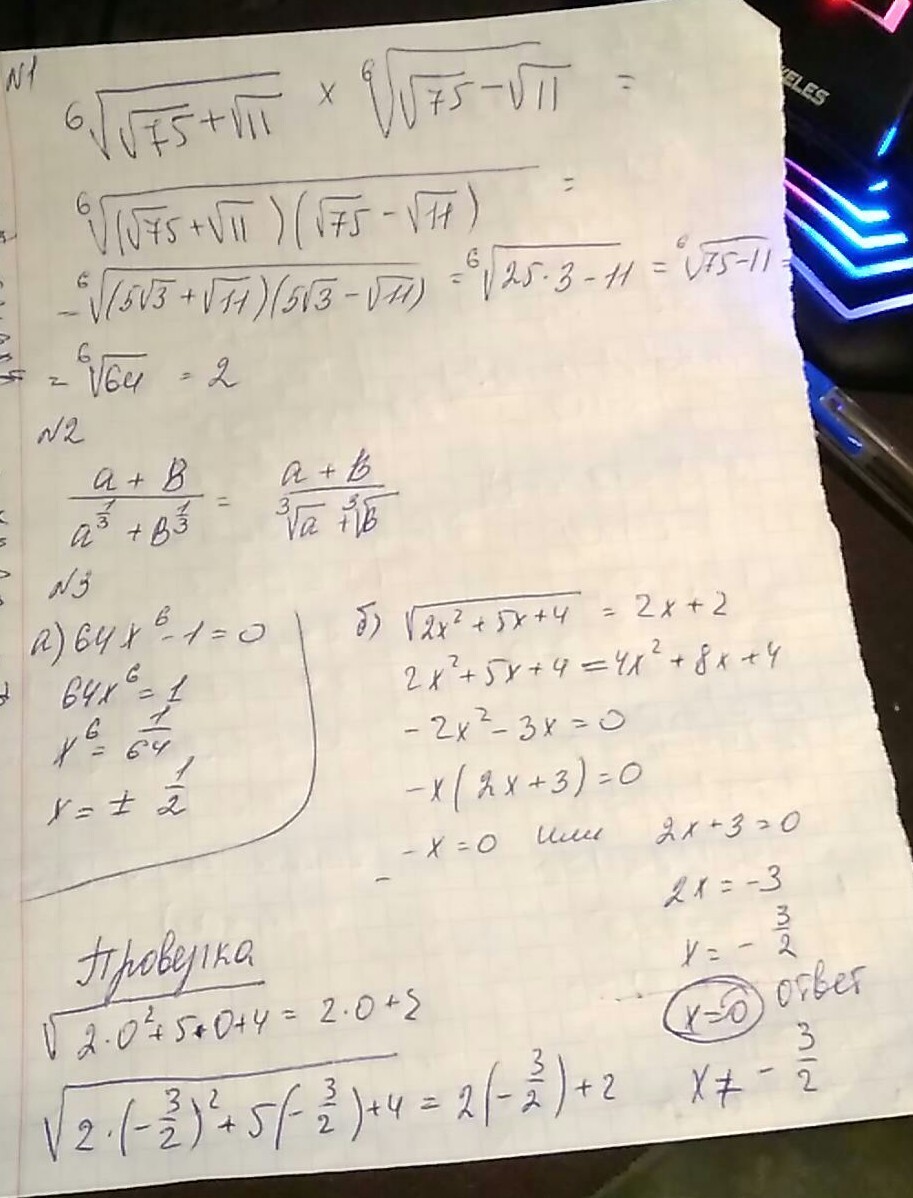 N1
⁶√(√75+√11) × ⁶√(√75-√11) =
⁶√((√75+√11)(√75-√11)) =
= ⁶√((5√3+√11)(5√3-√11)) = ⁶√(25·3-11) = ⁶√(75-11) =
= ⁶√64 = 2
N2
(a+B)/(a^(1/3)+B^(1/3)) = (a+B)/(³√a+³√B)
N3
а) 64x⁶-1=0
64x⁶=1
x⁶=1/64
x=± 1/2
б) √(2x²+5x+4) = 2x+2
2x²+5x+4=4x²+8x+4
-2x²-3x=0
-x(2x+3)=0
-x=0 или 2x+3=0
2x=-3
x=-3/2
x=0 ответ
x≠-3/2
Проверка
√(2·0²+5·0+4) = 2·0+2
√(2·(-3/2)²+5(-3/2)+4) = 2(-3/2)+2